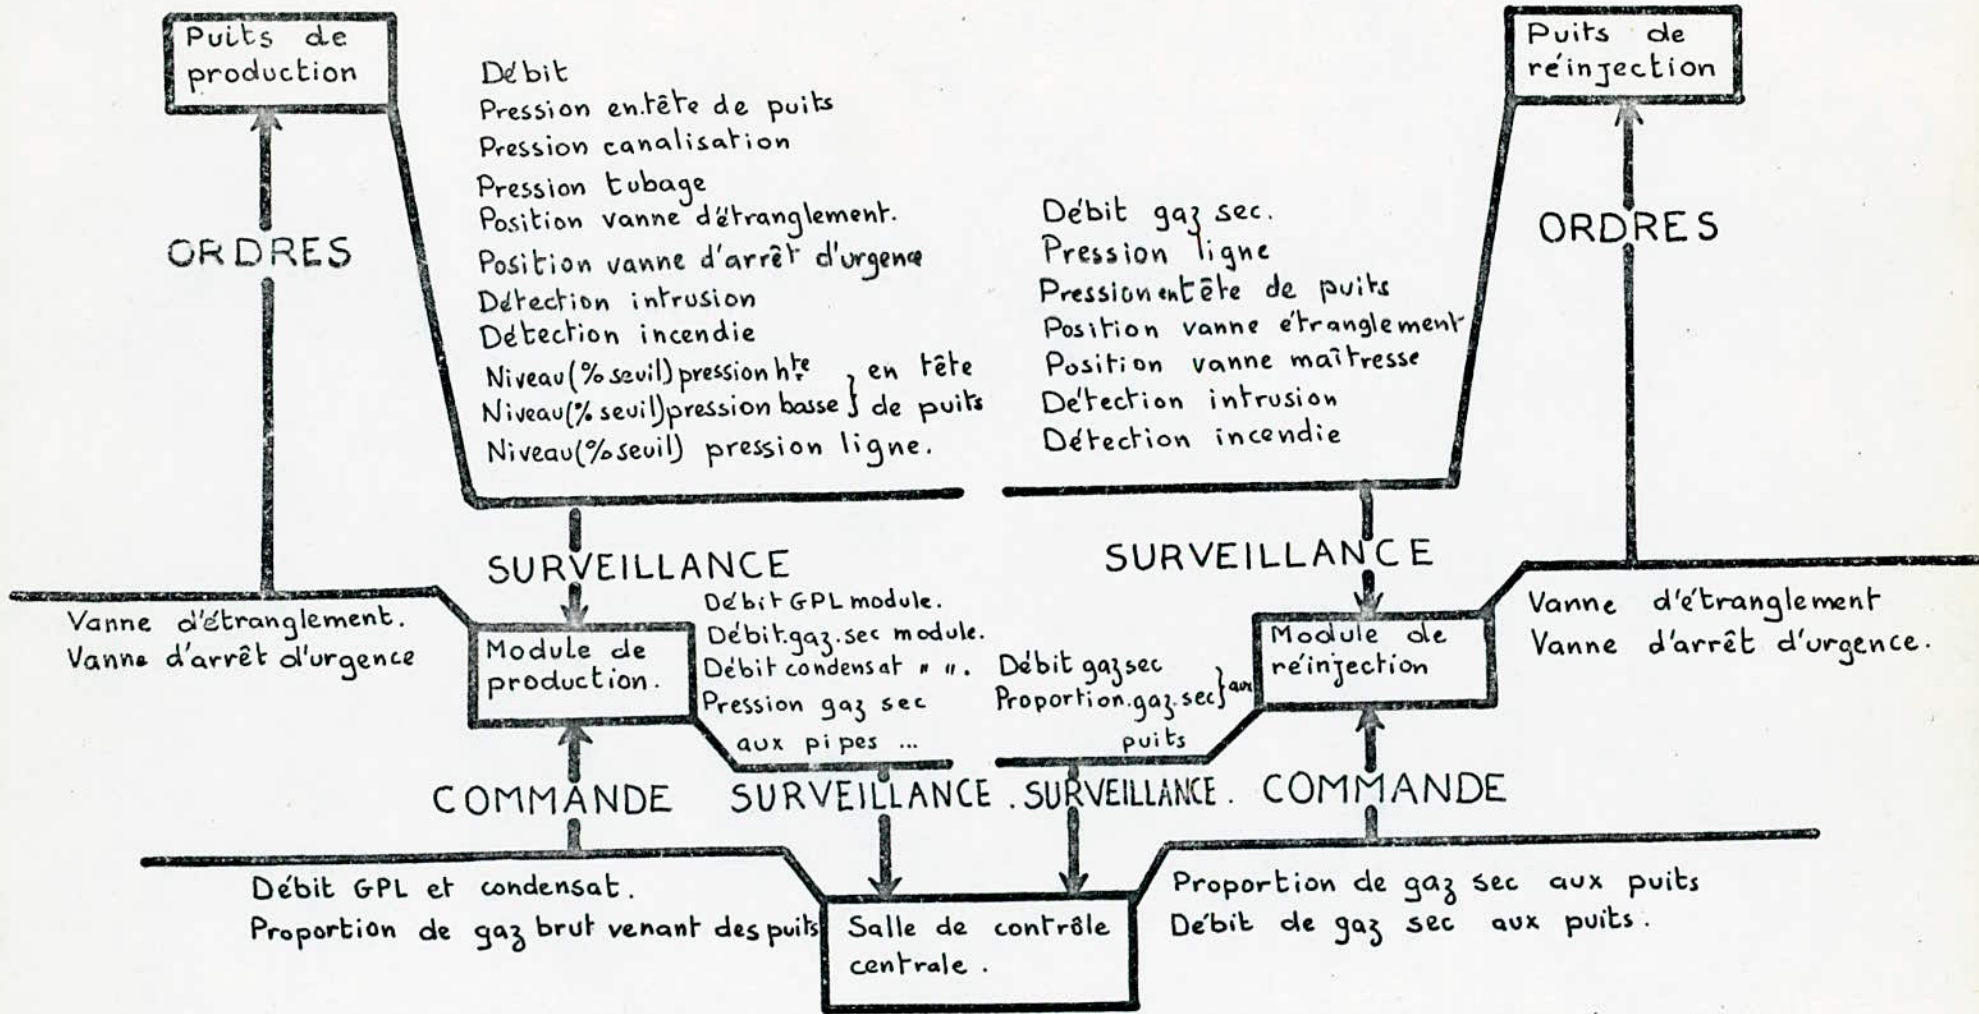 Puits de
production
Débit
Pression en.tête de puits
Pression canalisation
Pression tubage
Position vanne d'étranglement.
Position vanne d'arrêt d'urgence
Détection intrusion
Détection incendie
Niveau(% seuil) pression hte } en tête
Niveau(% seuil) pression basse } de puits
Niveau(% seuil) pression ligne.
Puits de
réinjection
Débit gaz sec.
Pression ligne
Pression en tête de puits
Position vanne étranglement
Position vanne maîtresse
Détection intrusion
Détection incendie
ORDRES
ORDRES
SURVEILLANCE
SURVEILLANCE
Vanne d'étranglement.
Vanne d'arrêt d'urgence
Module de
production.
Débit GPL module.
Débit.gaz.sec module.
Débit condensat " ".
Pression gaz sec
aux pipes ...
Débit gaz sec
Proportion.gaz.sec } aux
puits
Module de
réinjection
Vanne d'étranglement
Vanne d'arrêt d'urgence.
COMMANDE
SURVEILLANCE . SURVEILLANCE .
COMMANDE
Débit GPL et condensat.
Proportion de gaz brut venant des puits
Salle de contrôle
centrale .
Proportion de gaz sec aux puits
Débit de gaz sec aux puits.